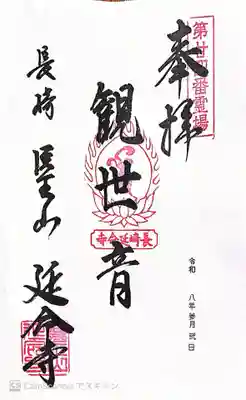 奉拝
第廿四番靈場
観世音
長崎延命寺
令和 八年 月 日
長崎 醫王山 延命寺
CS CamScanner でスキャン